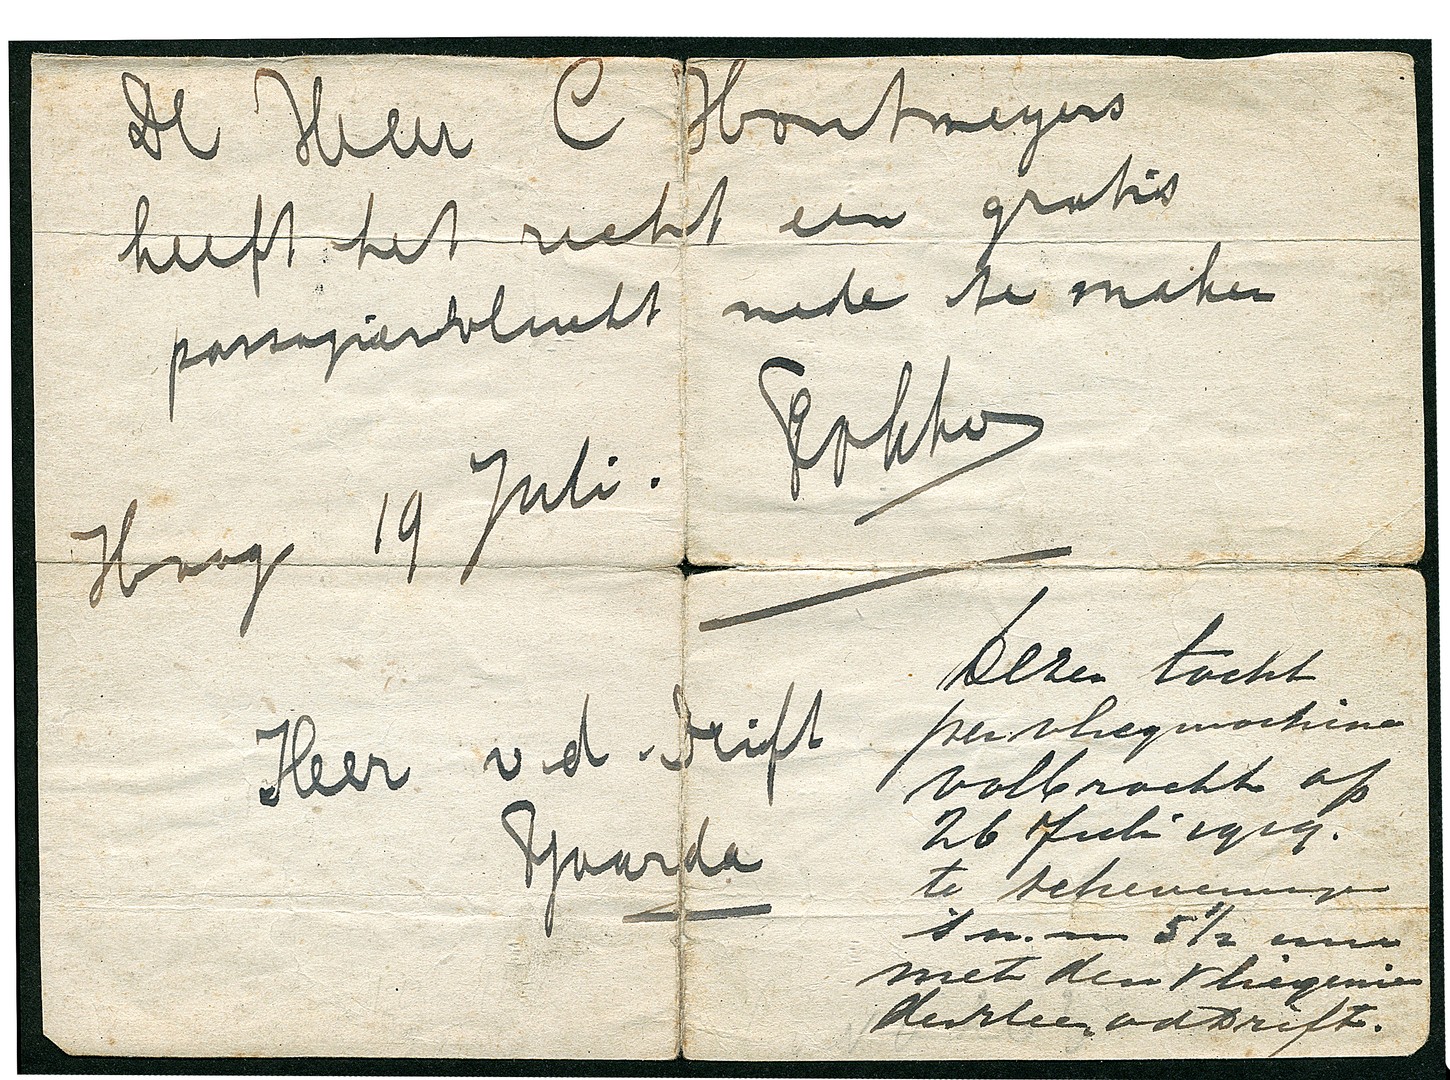 De Heer C Hontmeyers
heeft het recht een gratis
passagiersvlucht mede te maken
Fokker
Haag 19 Juli.
Heer v.d. Drift
Dezen tocht
per vliegmachine
volbracht op
26 Juli 1919.
te Scheveningen
5 1/2 uur
met den Vliegenier
den Heer v d Drift.